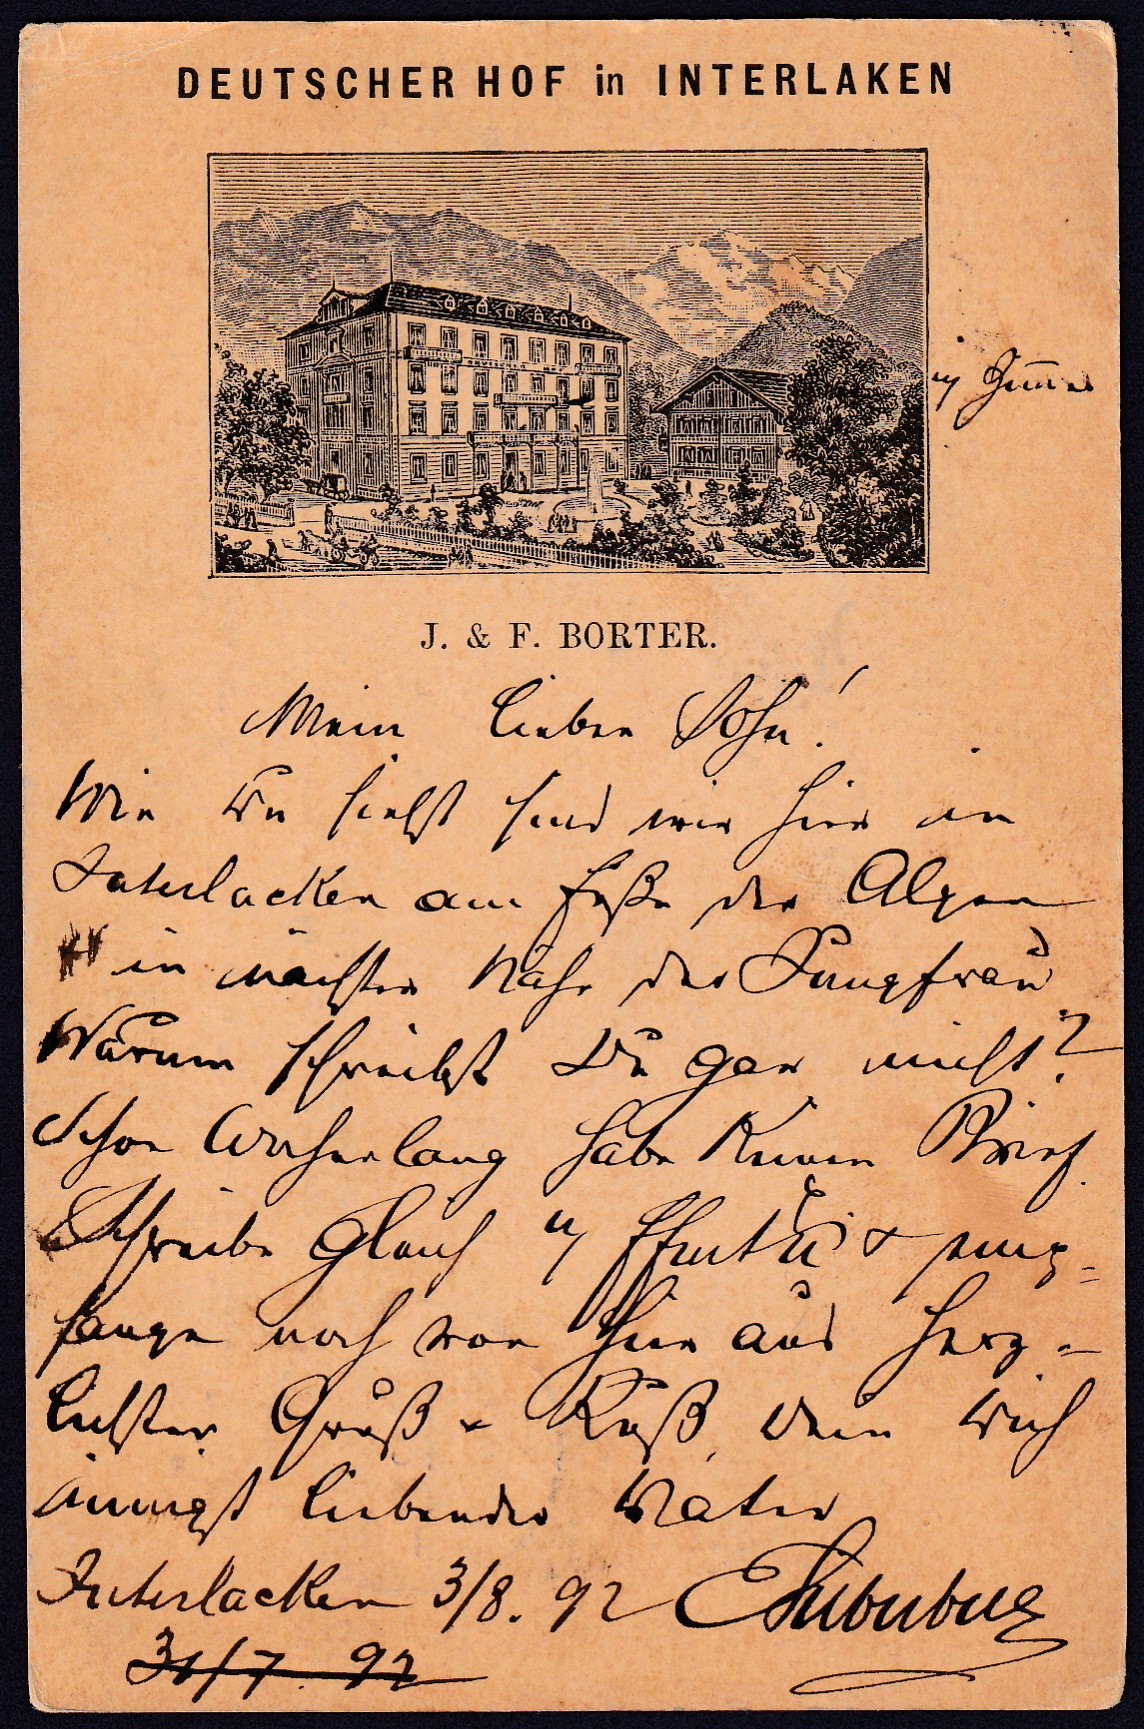 DEUTSCHER HOF in INTERLAKEN
J. & F. BORTER.
Mein lieber Sohn!
Wie Du siehst sind wir hier in
Interlacken am Fuße der Alpen
in nächster Nähe der Jungfrau
Warum schreibst Du gar nicht?
Schon Wochenlang habe keinen Brief.
Schreibe gleich
fange noch von hier aus herz-
lichster Gruß Kuß, Dein Dich
innigst liebender Vater
Interlacken 3/8. 92
31/7. 92